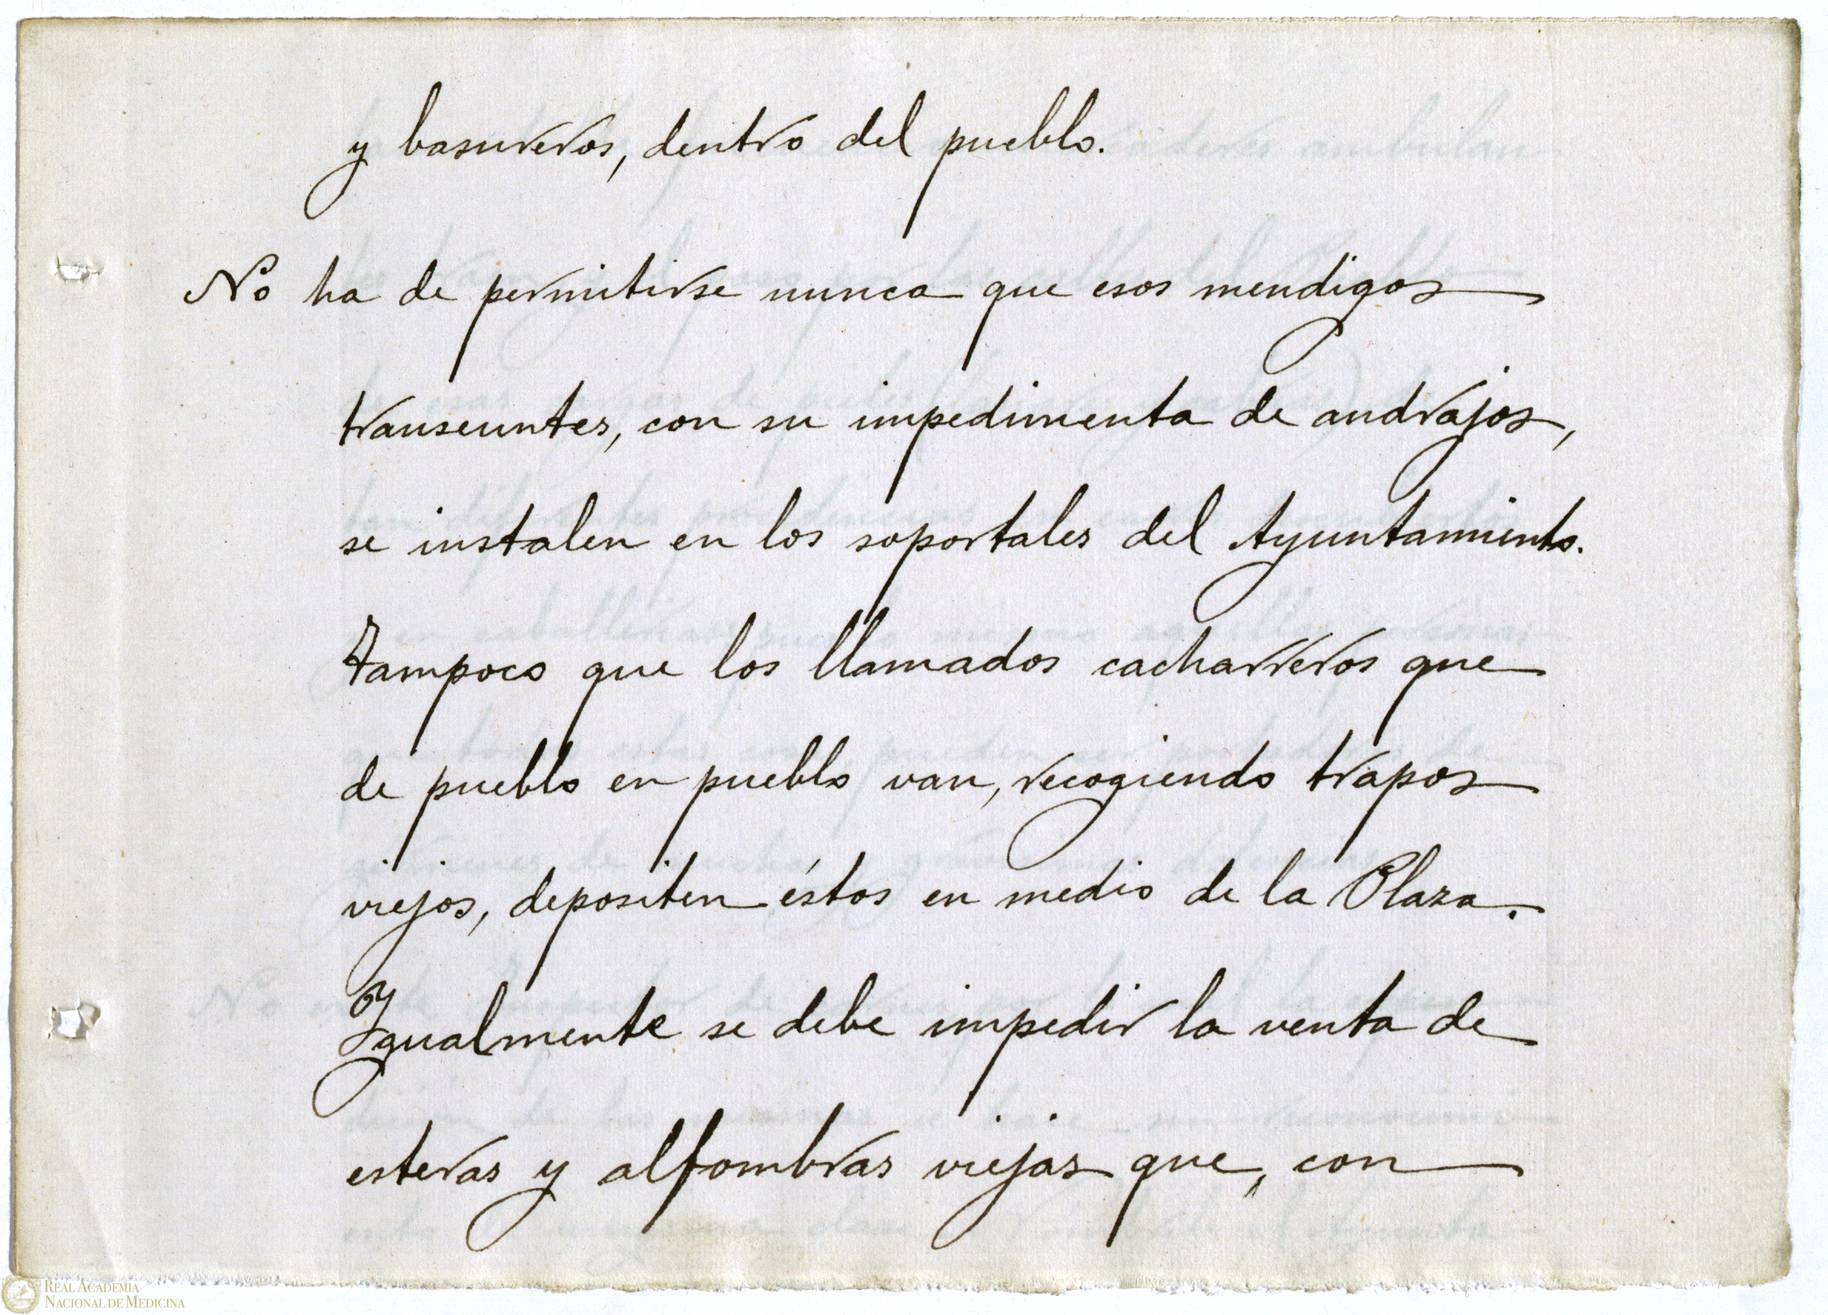 y basureros, dentro del pueblo.
No ha de permitirse nunca que esos mendigos
transeuntes, con su impedimenta de andrajos,
se instalen en los soportales del Ayuntamiento.
Tampoco que los llamados cacharreros que
de pueblo en pueblo van, recogiendo trapos
viejos, depositen éstos en medio de la Plaza.
Igualmente se debe impedir la venta de
esteras y alfombras viejas que, con
REAL ACADEMIA
NACIONAL DE MEDICINA